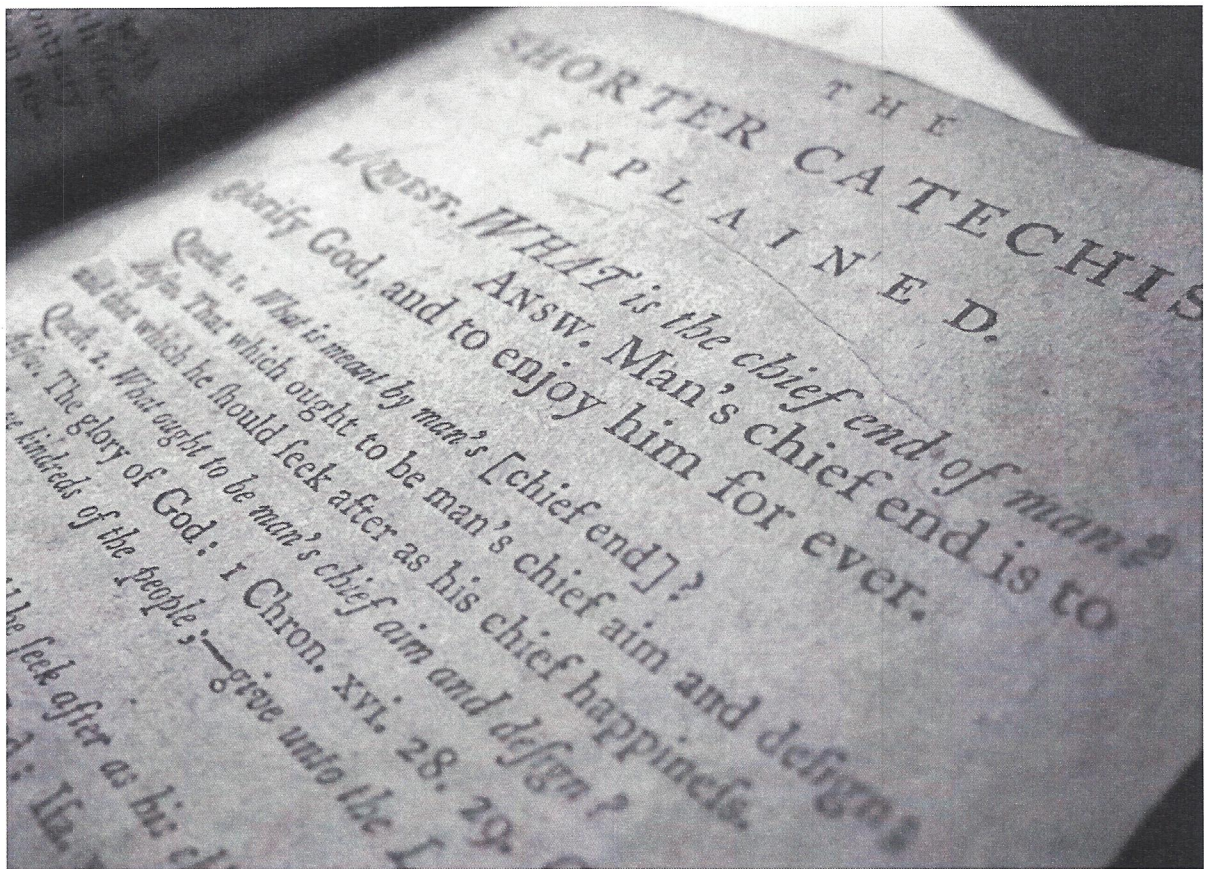 THE
SHORTER CATECHIS
EXPLAINED.
1. QUEST. WHAT is the chief end of man?
ANSW. Man's chief end is to
glorify God, and to enjoy him for ever.
Quest. 1. What is meant by man's [chief end]?
Answ. That which ought to be man's chief aim and deſign;
and that which he ſhould ſeek after as his chief happineſs.
Quest. 2. What ought to be man's chief aim and deſign?
Answ. The glory of God: 1 Chron. xvi. 28. 29.
kindreds of the people;—give unto the L
he ſeek after as his
: Iſa.